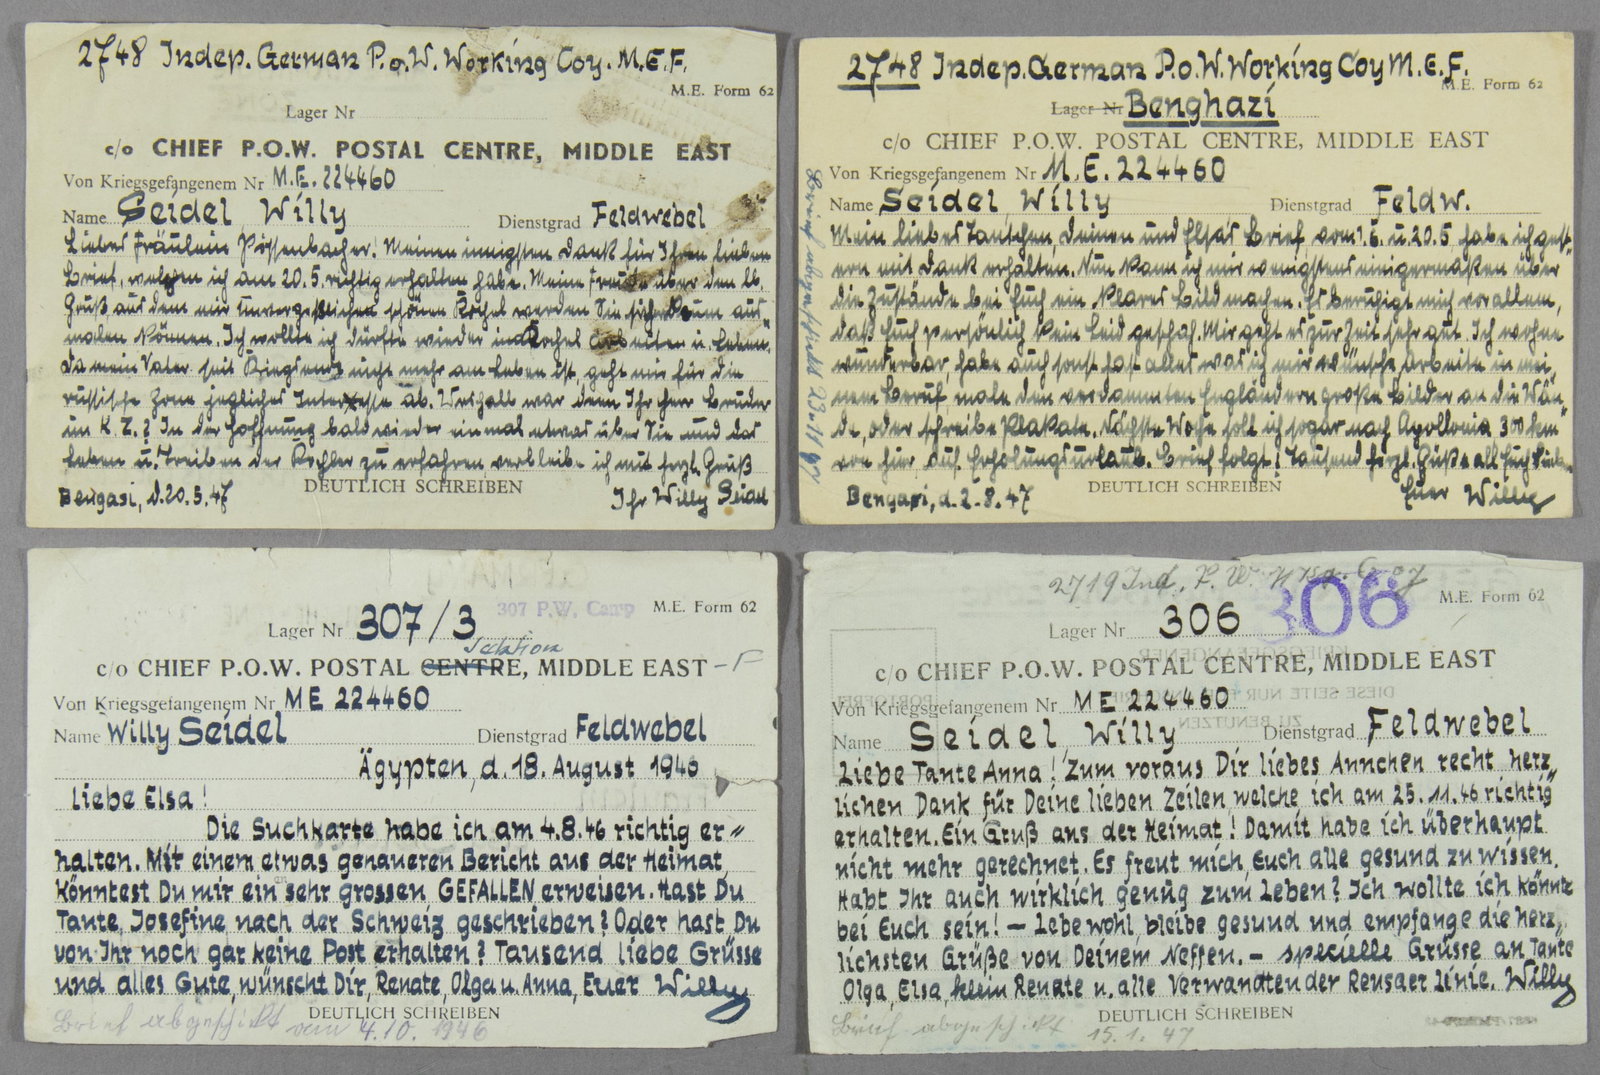 2748 Indep. German P.o.W. Working Coy. M.E.F.
M.E. Form 62
Lager Nr
c/o CHIEF P.O.W. POSTAL CENTRE, MIDDLE EAST
Von Kriegsgefangenem Nr M.E. 224460
Name Seidel Willy Dienstgrad Feldwebel
Liebes Fräulein Pössenbacher! Meinen innigsten Dank für Ihren lieben
Brief, welchen ich am 20.5. richtig erhalten habe. Meine Freude über den lb.
Gruß aus dem mir unvergeßlichen schönen Kochel werden Sie sicher kaum aus-
malen können. Ich wollte ich dürfte wieder in Kochel arbeiten u. leben.
Da mein Vater seit Kriegsende nicht mehr am Leben ist, geht mir für die
russische Zone jegliches Interesse ab. Weshalb war denn Ihr Herr Bruder
im K.Z.? In der Hoffnung bald wieder einmal etwas über Sie und das
Leben u. Treiben der Kochler zu erfahren verbleibe ich mit herzl. Gruß
Bengasi, d. 20.5.47 DEUTLICH SCHREIBEN Ihr Willy Seidel
2748 Indep. German P.o.W. Working Coy M.E.F.
M.E. Form 62
Lager Nr Benghazi
c/o CHIEF P.O.W. POSTAL CENTRE, MIDDLE EAST
Von Kriegsgefangenem Nr M.E. 224460
Name Seidel Willy Dienstgrad Feldw.
Mein liebes Tantchen, Deinen und Elsa's Brief vom 1.6. u. 20.5. habe ich gest-
ern mit Dank erhalten. Nun kann ich mir wenigstens einigermaßen über
die Zustände bei Euch ein klares Bild machen. Es beruhigt mich vor allem,
daß Euch persönlich kein Leid geschah. Mir geht es zur Zeit sehr gut. Ich wohne
wunderbar, habe auch sonst fast alles was ich mir wünsche, arbeite in mei-
nem Beruf, male den verdammten Engländern große Bilder an die Wän-
de, oder schreibe Plakate. Nächste Woche soll ich sogar nach Apollonia 300 km
von hier auf Erholungsurlaub. Brief folgt! Tausend herzl. Grüße all Euch Lieben
Bengasi, d. 2.8.47 DEUTLICH SCHREIBEN Euer Willy
Brief abgeschickt 23.11.47
307 P.W. Camp M.E. Form 62
Lager Nr 307/3
c/o CHIEF P.O.W. POSTAL CENTRE, MIDDLE EAST
Von Kriegsgefangenem Nr ME 224460
Name Willy Seidel Dienstgrad Feldwebel
Ägypten, d. 18. August 1946
Liebe Elsa!
Die Suchkarte habe ich am 4.8.46 richtig er=
halten. Mit einem etwas genaueren Bericht aus der Heimat
könntest Du mir einen sehr grossen GEFALLEN erweisen. Hast Du
Tante Josefine nach der Schweiz geschrieben? Oder hast Du
von Ihr noch gar keine Post erhalten? Tausend liebe Grüsse
und alles Gute, wünscht Dir, Renate, Olga u. Anna, Euer Willy
DEUTLICH SCHREIBEN
Brief abgeschickt vom 4.10.1946
2719 Ind. P.W.
306
M.E. Form 62
Lager Nr 306
c/o CHIEF P.O.W. POSTAL CENTRE, MIDDLE EAST
Von Kriegsgefangenem Nr ME 224460
Name Seidel Willy Dienstgrad Feldwebel
Liebe Tante Anna! Zum voraus Dir liebes Annchen recht herz„
lichen Dank für Deine lieben Zeilen, welche ich am 25.11.46 richtig
erhalten. Ein Gruß aus der Heimat! Damit habe ich überhaupt
nicht mehr gerechnet. Es freut mich, Euch alle gesund zu wissen.
Habt Ihr auch wirklich genug zum Leben? Ich wollte ich könnte
bei Euch sein! – Lebe wohl, bleibe gesund und empfange die herz„
lichsten Grüße von Deinem Neffen. – specielle Grüsse an Tante
Olga, Elsa, klein Renate u. alle Verwandten der Reusaer Linie. Willy
DEUTLICH SCHREIBEN
Brief abgeschickt 15.1.47